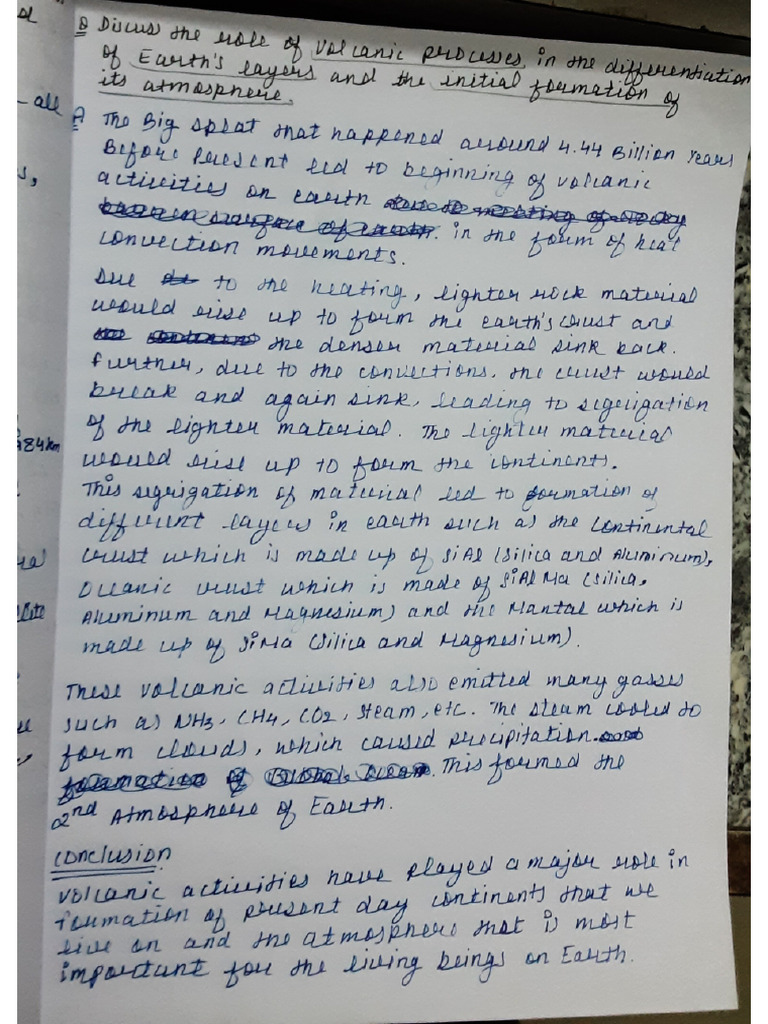 Q Discuss the role of volcanic processes in the differentiation
of Earth's layers and the initial formation of
its atmosphere.
A The Big splat that happened around 4.44 Billion Years
Before Present led to beginning of volcanic
activities on earth
in the form of heat
convection movements.
Due to the heating, lighter rock material
would rise up to form the earth's crust and
the denser material sink back.
Further, due to the convections, the crust would
break and again sink, leading to segrigation
of the lighter material. The lighter material
would rise up to form the continents.
This segrigation of material led to formation of
different layers in earth such as the continental
crust which is made up of SiAl (Silica and Aluminum),
Oceanic crust which is made of SiAlMa (Silica,
Aluminum and Magnesium) and the Mantal which is
made up of SiMa (Silica and Magnesium).
These volcanic activities also emitted many gasses
such as NH3, CH4, CO2, Steam, etc. The steam cooled to
form clouds, which caused precipitation.
This formed the
2nd Atmosphere of Earth.
Conclusion
Volcanic activities have played a major role in
formation of present day continents that we
live on and the atmosphere that is most
important for the living beings on Earth.
all
s,
84km